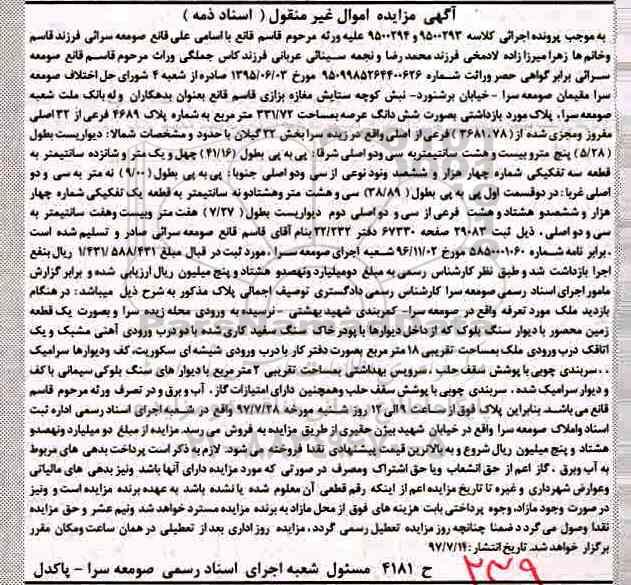 آگهی مزایده اموال غیر منقول ( اسناد ذمه )
به موجب پرونده اجرائی کلاسه ۹۵۰۰۲۹۳ و ۹۵۰۰۲۹۴ علیه ورثه مرحوم قاسم قانع با اسامی علی قانع صومعه سرائی فرزند قاسم
وخانم ها زهرا میرزا زاده لادمخی فرزند محمد رضا و نجمه سینائی عربانی فرزند کاس جملگی وراث مرحوم قاسم قانع صومعه
سرائی برابر گواهی حصر وراثت شماره ۹۵۰۹۹۸۵۲۶۴۴۰۰۶۲۶ مورخ ۱۳۹۵/۰۶/۰۳ صادره از شعبه ۴ شورای حل اختلاف صومعه
سرا مقیمان صومعه سرا - خیابان برشنورد- نبش کوچه ستایش مغازه بزازی قاسم قانع بعنوان بدهکاران و له بانک ملت شعبه
صومعه سرا، پلاک مورد بازداشتی بصورت شش دانگ عرصه بمساحت ۳۳۱/۷۲ متر مربع به شماره پلاک ۴۶۸۹ فرعی از ۳۲ اصلی
مفروز ومجزی شده از (۳۶۸۱،۷۸ ) فرعی از اصلی واقع در زیده سرا بخش ۲۲ گیلان با حدود و مشخصات شمالا: دیواریست بطول
(۵/۲۸) پنج متر و بیست و هشت سانتیمتر به سی ودو اصلی شرقا : پی به پی بطول (۴۱/۱۶) چهل و یک متر و شانزده سانتیمتر به
قطعه سه تفکیکی شماره چهار هزار و ششصد ونود نوعی از سی ودو اصلی جنوبا: پی به پی بطول (۹/۰۰) نه متر به سی و دو
اصلی غربا: در دوقسمت اول پی به پی بطول (۳۸/۸۹ ) سی و هشت متر وهشتاد و نه سانتیمتر به قطعه یک تفکیکی شماره چهار
هزار و ششصدو هشتاد و هشت فرعی از سی و دو اصلی دوم دیواریست بطول ( ۷/۲۷) هفت متر وبیست وهفت سانتیمتر به
سی و دو اصلی . ذیل ثبت ۲۹۰۸۳ صفحه ۶۷۳۳۰ دفتر ۲۲/۲۳۲ بنام آقای قاسم قانع صومعه سرائی صادر و تسلیم شده است
. برابر نامه شماره ۵۸۵۰۰۱۰۶۰ مورخ ۹۶/۱۱/۰۲ شعبه اجرای صومعه سرا ، مورد ثبت در قبال مبلغ ۱/۴۳۱/۵۸۸/۴۳۱ ریال بنفع
اجرا بازداشت شد و طبق نظر کارشناس رسمی به مبلغ دومیلیارد ونهصدو هشتاد و پنج میلیون ریال ارزیابی شده و برابر گزارش
مامور اجرای اسناد رسمی صومعه سرا کارشناس رسمی دادگستری توصیف اجمالی پلاک مذکور به شرح ذیل میباشد: در هنگام
بازدید ملک مورد تعرفه واقع در صومعه سرا- کمربندی شهید بهشتی - نرسیده به ورودی محله زیده سرا و بصورت یک قطعه
زمین محصور با دیوار سنگ بلوک که از داخل دیوارها با پودر خاک سنگ سفید کاری شده با دو درب ورودی آهنی مشبک و یک
اتاقک درب ورودی ملک بمساحت تقریبی ۱۸ متر مربع بصورت دفتر کار با درب ورودی شیشه ای سکوریت، کف ودیوارها سرامیک
، ،سربندی چوبی با پوشش سقف حلب ، سرویس بهداشتی بمساحت تقریبی ۲ متر مربع با دیوار های سنگ بلوکی سیمانی با کف
و دیوار سرامیک شده ، سربندی چوبی با پوشش سقف حلب وهمچنین دارای امتیازات گاز ، آب و برق و در تصرف ورثه مرحوم قاسم
قانع می باشد. بنابراین پلاک فوق از ساعت ۹ الی ۱۲ روز شنبه مورخه ۹۷/۷/۲۸ واقع در شعبه اجرای اسناد رسمی اداره ثبت
اسناد واملاک صومعه سرا واقع در خیابان شهید بیژن حقیری از طریق مزایده به فروش می رسد. مزایده از مبلغ دو میلیارد ونهصدو
هشتاد و پنج میلیون ریال شروع و به بالاترین قیمت پیشنهادی نقدا فروخته می شود. لازم به ذکر است پرداخت بدهی های مربوط
به آب وبرق ، گاز اعم از حق انشعاب ویا حق اشتراک ومصرف در صورتی که مورد مزایده دارای آنها باشد ونیز بدهی های مالیاتی
وعوارض شهرداری و غیره تا تاریخ مزایده اعم از اینکه رقم قطعی آن معلوم شده یا نشده باشد به عهده برنده مزایده است و نیز
در صورت وجود مازاد، وجوه پرداختی بابت هزینه های فوق از محل مازاد به برنده مزایده مسترد خواهد شد ونیم عشر و حق مزایده
نقدا وصول می گردد ضمنا چنانچه روز مزایده تعطیل رسمی گردد ، مزایده روز اداری بعد از تعطیلی در همان ساعت ومکان مقرر
برگزار خواهد شد. تاریخ انتشار :۹۷/۷/۱۴
ح ۴۱۸۱ مسئول شعبه اجرای اسناد رسمی صومعه سرا - پاکدل
۲۳۹